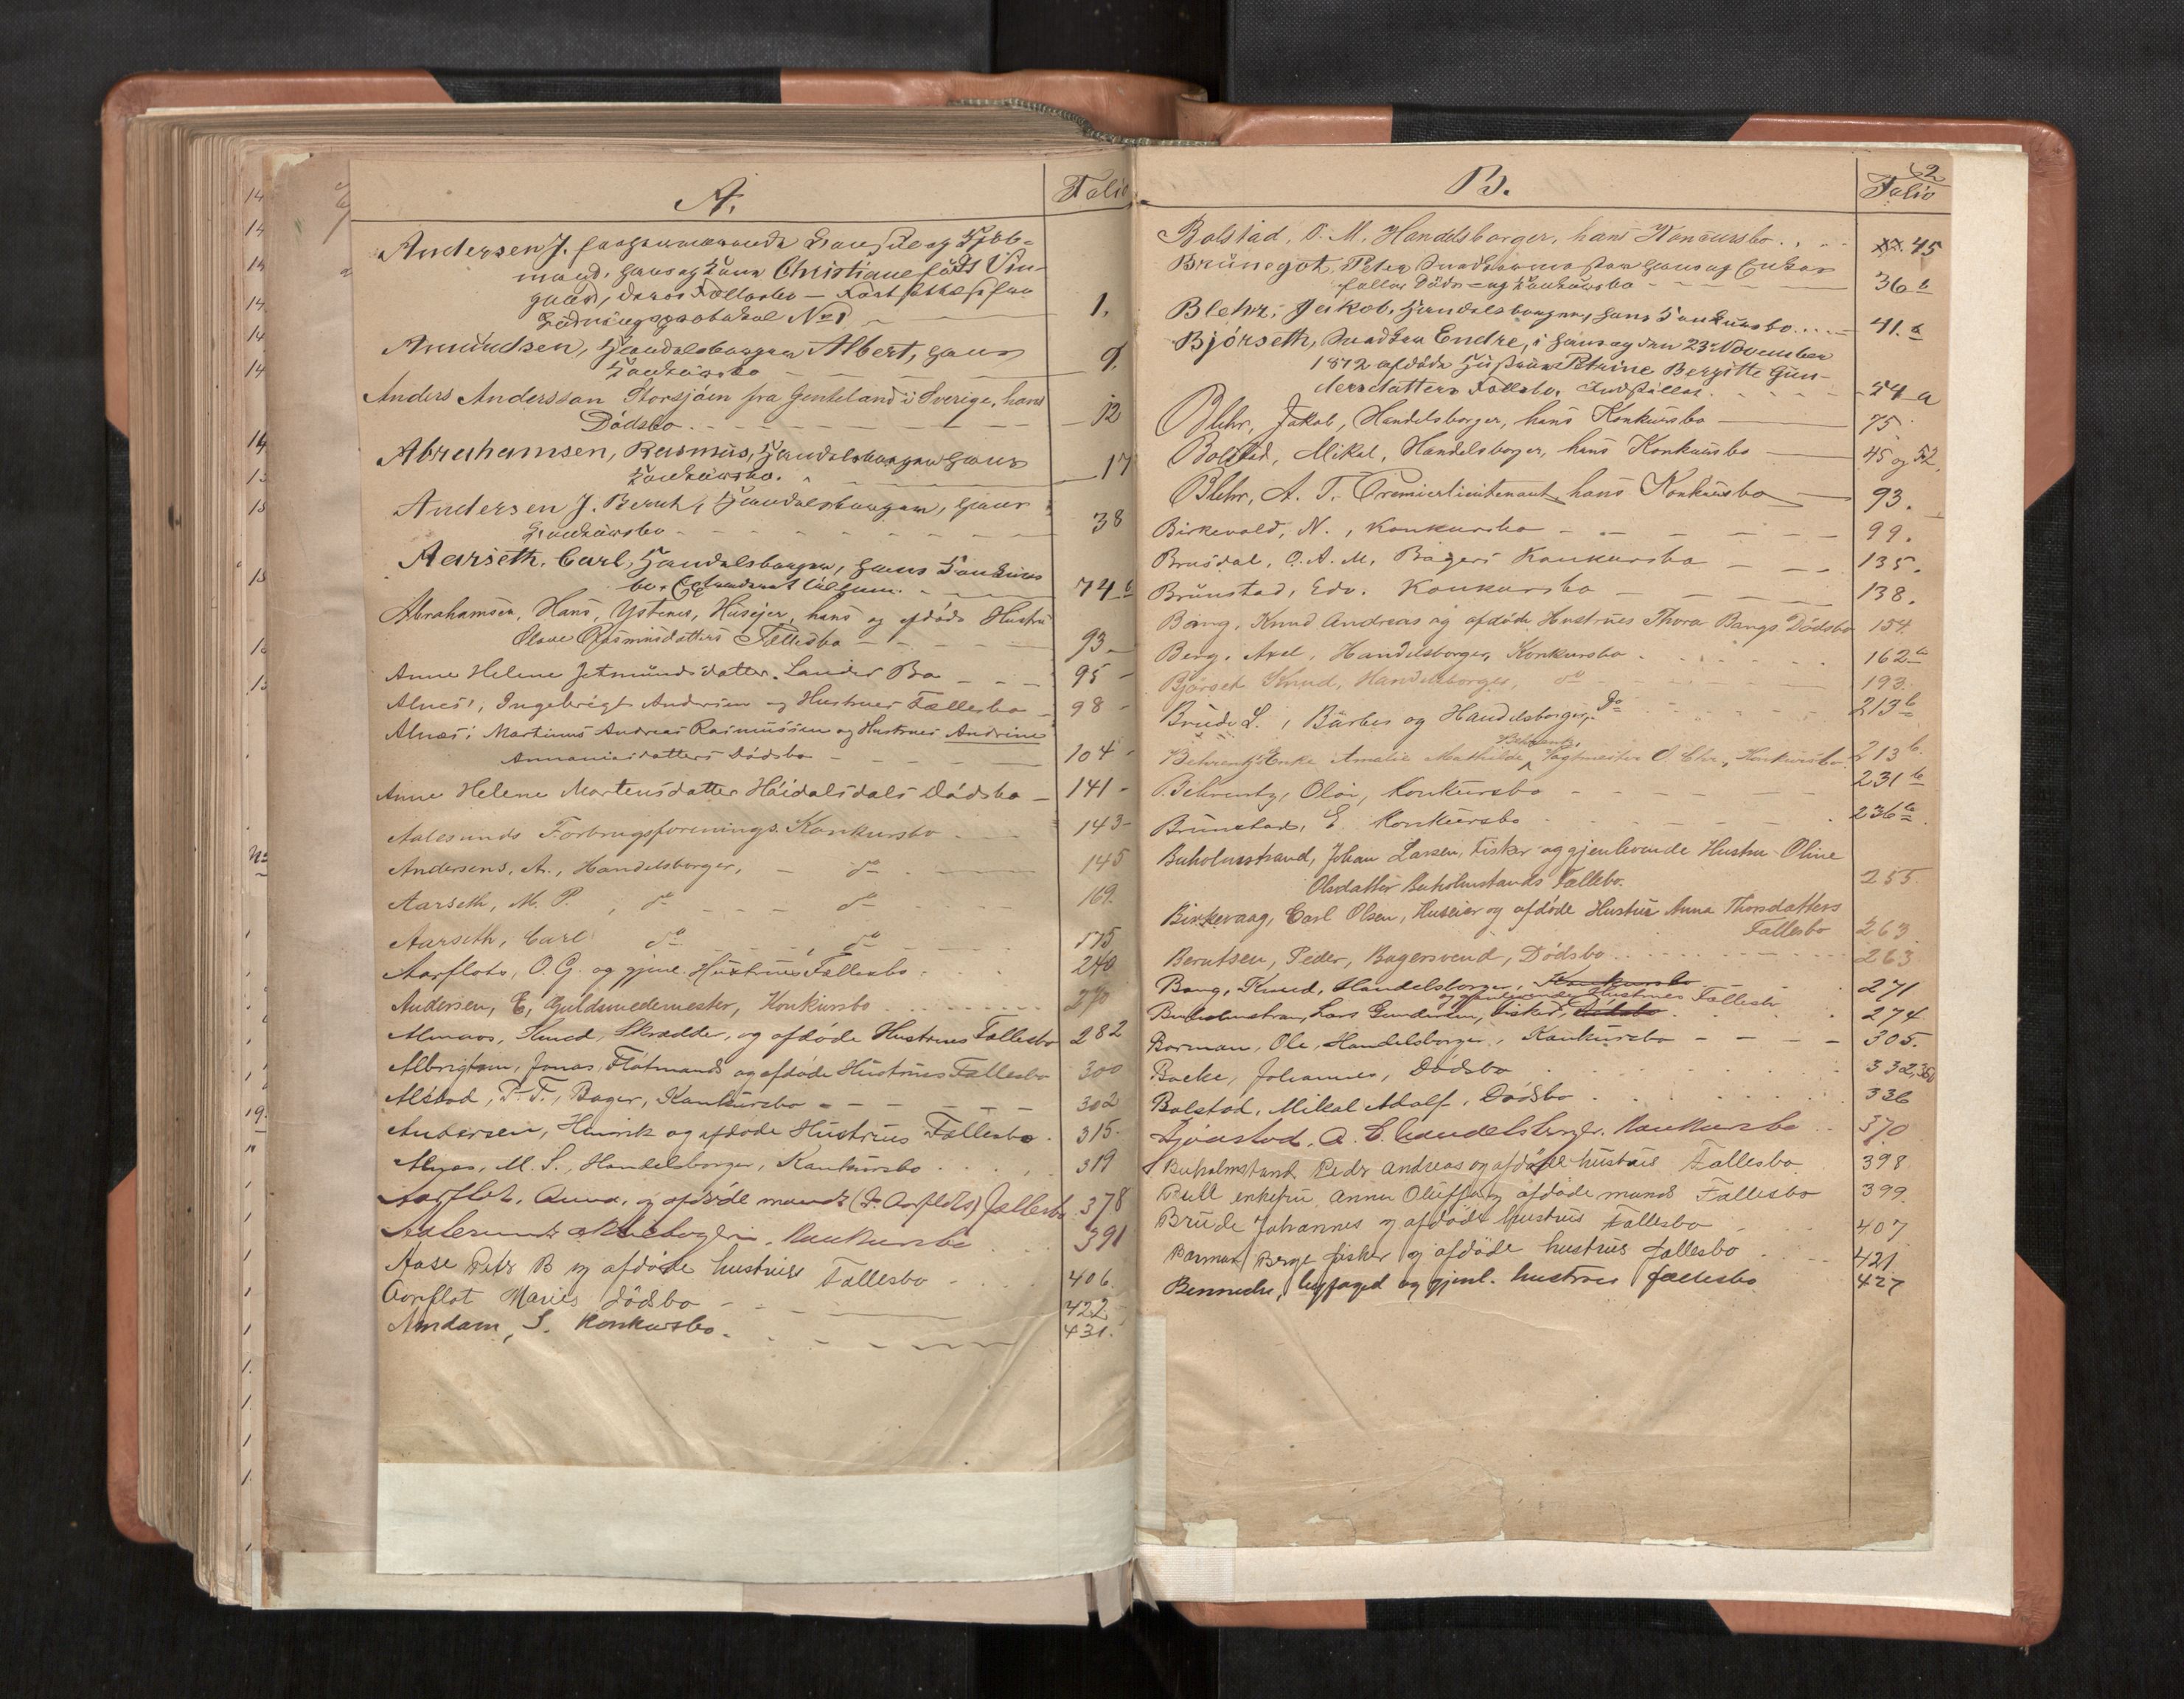 A.
Folio
Andersen J. Handels og Kjøb-
mand, hans og Kone Christiane født Vin-
gaard, deres Fællesbo — Fortsættelse fra
Skifteprotokol No 1
1.
Amundsen, Handelsborger Albert, hans
Konkursbo
9.
Anders Andersson Storsjøen fra Jemteland i Sverige, hans
Dødsbo
12
Abrahamsen, Rasmus, Handelsborger hans
Konkursbo.
17
Andersen J. Bernt, Handelsborger, hans
Konkursbo
38
Aarseth, Carl, Handelsborger, hans Konkurs
bo.
74 b
Abrahamsen, Hans, Ystenes, Huseier, hans og afdøde Hustru
Olave Rasmusdatters Fællesbo
93
Anne Helene Jetmundsdatter Landes Bo
95
Alnes, Ingebrigt Andersen og Hustrues Fællesbo
98
Alnæs, Martinus Andreas Rasmussen og Hustrues Andrine
Annaniasdatters Dødsbo
104
Anne Helene Martensdatter Høidalsdals Dødsbo
141
Aalesunds Forbrugsforenings Konkursbo
143
Andersens, A., Handelsborger, do
145
Aarseth, M. P. , do do
169.
Aarseth, Carl do do
175
Aarflots, O. G. og gjenl. Hustrues Fællesbo
240
Andersen, E, Guldsmedemester, Konkursbo
270
Almaas, Knud, Skrædder, og afdøde Hustrues Fællesbo
282
Albrigtsen, Jonas, Flotmands og afdøde Hustrues Fællesbo
300
Alstad, P. T., Bager, Konkursbo
302
Andersen, Henrik og afdøde Hustrues Fællesbo
315
Myas, M. S., Handelsborger, Konkursbo
319
Aarflot, Anna, og afdøde mands (J. Aarflots) Fællesbo
378
Aalesunds Konkursbo
391
Aase Peter B og afdøde hustrues Fællesbo
406.
Aarflot Maries Dødsbo
422
Amdam, S. Konkursbo.
431.
B.
62
Folio
Bolstad, O. M. Handelsborger, hans Konkursbo
45
Brünegot, Peter hans og Enkes
fælles Døds- og Konkursbo
36 b
Blehr, Jakob, Handelsborger, hans Konkursbo
41. a
Bjørseth, Endre, i hans og den 23de November
1872 afdøde Hustrues Petrine Bergitte Gun-
dersdatters Fællesbo.
54 a
Blehr, Jakob, Handelsborger, hans Konkursbo
75
Bolstad, Mikal, Handelsborger, hans Konkursbo
45 og 52.
Blehr, A. T. Premierlieutenant, hans Konkursbo
93.
Birkevold, N., Konkursbo
99.
Brusdal, O. A. M. Bagers Konkursbo
135.
Brünstad, Edv. Konkursbo
138.
Bang, Knud Andreas og afdøde Hustrues Thora Bangs Dødsbo
154.
Berg, Axel, Handelsborger, Konkursbo
162 b
Bjørset Knud, Handelsborger, do
193.
Brude L. , Barber og Handelsborger, do
213 b
Behrentz Enke Amalie Mathilde, Behrentz, Vagtmester O Chr., Konkursbo
213 b.
Behrentz, Olai, Konkursbo
231 b
Brünstad, E. Konkursbo
236 b
Buholmstrand, Johan Larsen, Fisker og gjenlevende Hustru Oline
Olsdatter Buholmstrands Fællebo.
255.
Birkevaag, Carl Olsen, Huseier og afdøde Hustru Anna Thorsdatters
Fællesbo
263
Berntsen, Peder, Bagersvend, Dødsbo
263
Bang, Knud, Handelsborger, Konkursbo
271
og gjenlevende Hustrues Fællesbo
Buholmstran, Lars Gundersen, Fisker, Dødsbo
274
Borman, Ole, Handelsborger, Konkursbo
305.
Backe, Johannes, Dødsbo
332, 350
Bolstad, Mikal Adolf, Dødsbo
336
Bjørstad, A. C. handelsborger. Konkursbo
370
Buholmstrand Peder Andreas og afdøde hustrues Fællesbo
398
Bull enkefru Anna Oluffa og afdøde mands Fællesbo
399.
Brude Johannes og afdøde hustrues Fællesbo
407
Barman Berge fisker og afdøde hustrues fællesbo
421
Bennecke, byfoged og gjenl. hustrues fællesbo
427